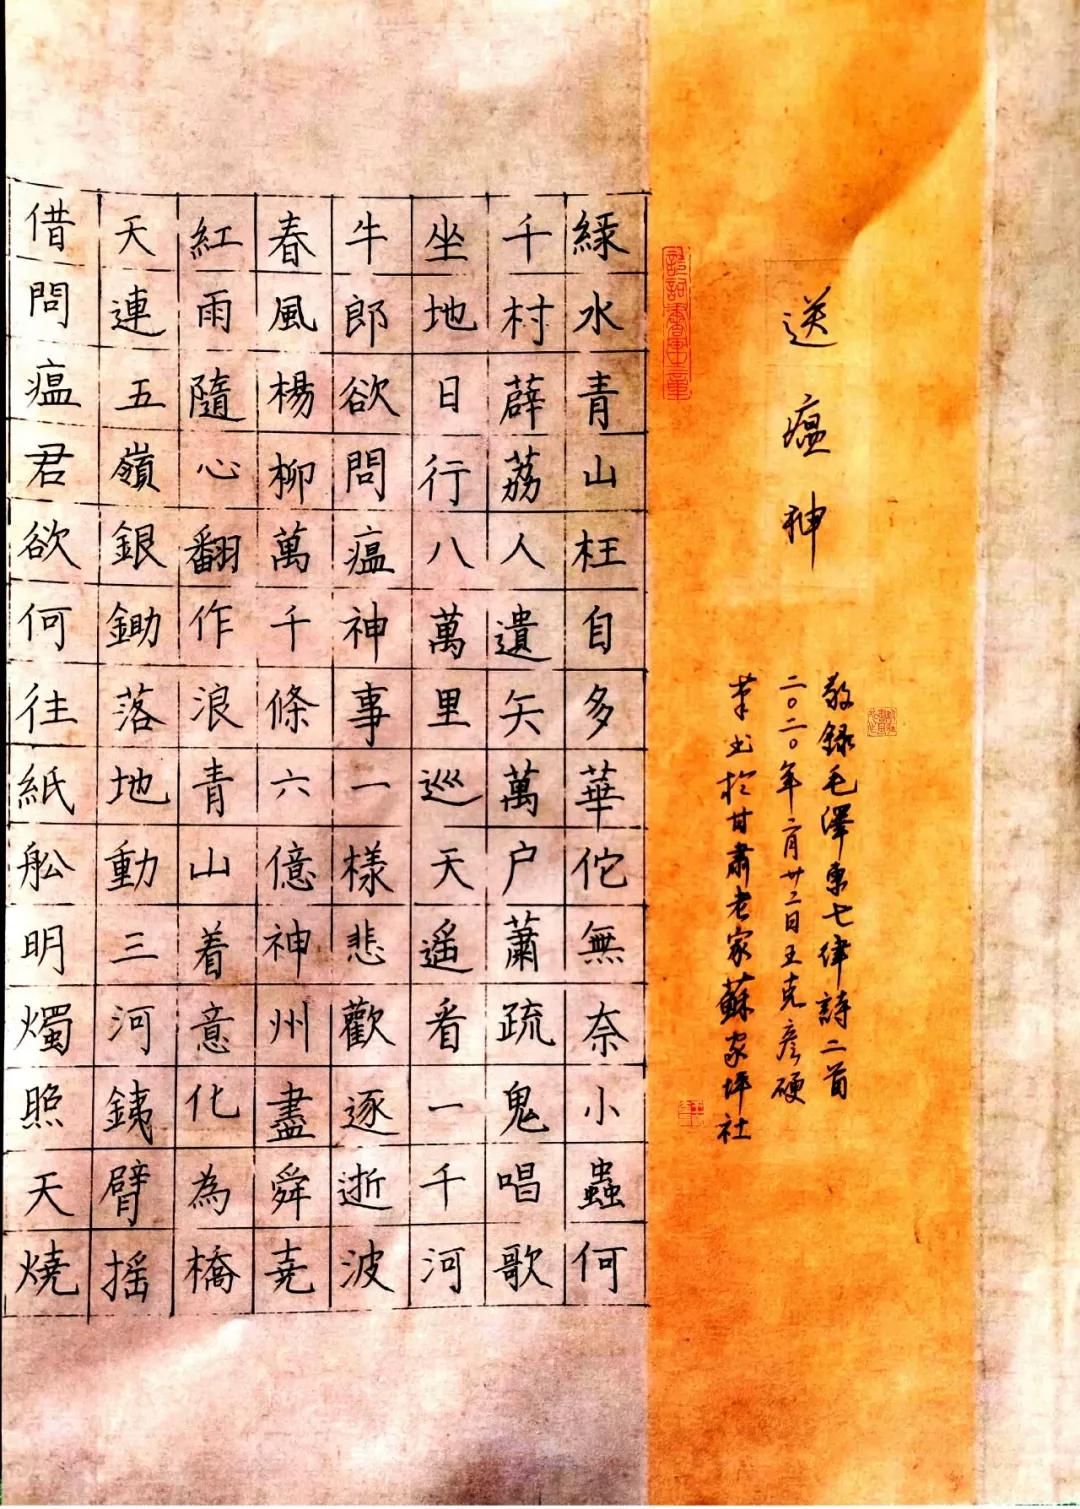 送瘟神
敬録毛澤東七律詩二首
二〇二〇年二月廿二日王克彦硬
筆书於甘肅老家蘇家坪社
緑水青山枉自多華佗無奈小蟲何
千村薜荔人遺矢萬户蕭疏鬼唱歌
坐地日行八萬里巡天遥看一千河
牛郎欲問瘟神事一樣悲歡逐逝波
春風楊柳萬千條六億神州盡舜堯
紅雨隨心翻作浪青山着意化為橋
天連五嶺銀鋤落地動三河銕臂摇
借問瘟君欲何往紙舩明燭照天燒